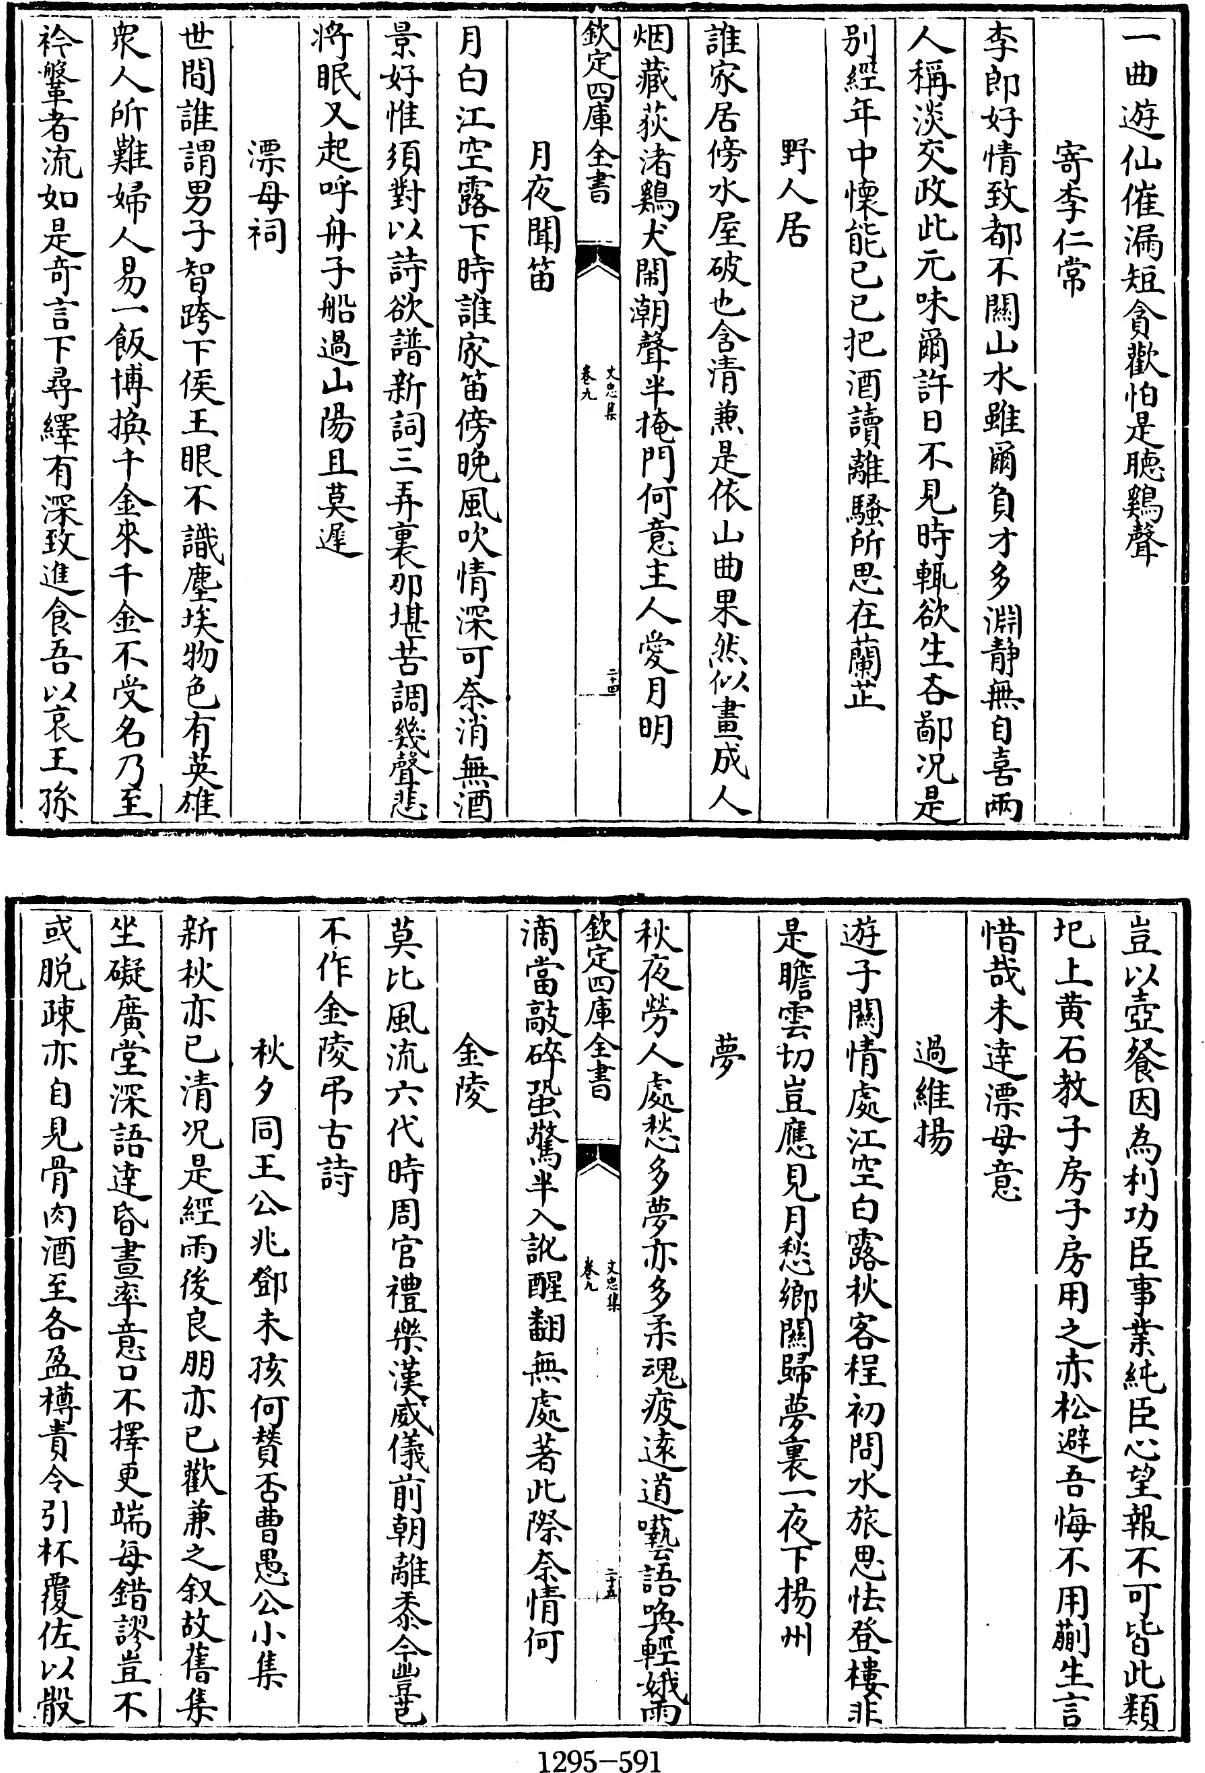 一曲遊仙催漏短貪歡怕是聴鷄聲
寄李仁常
李郎好情致都不關山水雖爾負才多淵靜無自喜兩
人稱淡交政此元味爾許日不見時輒欲生吝鄙况是
别經年中懷能已已把酒讀離騷所思在蘭芷
野人居
誰家居傍水屋破也含清兼是依山曲果然似畫成人
烟藏荻渚鷄犬閙潮聲半掩門何意主人愛月明
欽定四庫全書
文忠集
卷九
二十四
月夜聞笛
月白江空露下時誰家笛傍晩風吹情深可奈消無酒
景好惟須對以詩欲譜新詞三弄裏那堪苦調幾聲悲
將眠又起呼舟子船過山陽且莫遲
漂母祠
世間誰謂男子智跨下侯王眼不識塵埃物色有英雄
衆人所難婦人易一飯博換千金來千金不受名乃至
衿鞶者流如是竒言下尋繹有深致進食吾以哀王孫
豈以壺餐因為利功臣事業純臣心望報不可皆此類
圯上黄石教子房子房用之赤松避吾悔不用蒯生言
惜哉未達漂母意
過維揚
遊子關情處江空白露秋客程初問水旅思怯登樓非
是瞻雲切豈應見月愁鄉關歸夢裏一夜下揚州
夢
秋夜勞人處愁多夢亦多柔魂疲遠道囈語喚輕娥雨
欽定四庫全書
文忠集
卷九
二十五
滴當敲碎蛩驚半入訛醒翻無處著此際奈情何
金陵
莫比風流六代時周官禮樂漢威儀前朝離黍今豐芑
不作金陵弔古詩
秋夕同王公兆鄧未孩何賛否曹愚公小集
新秋亦已清况是經雨後良朋亦已歡兼之叙故舊集
坐礙廣堂深語達昏晝率意口不擇更端每錯謬豈不
或脱疎亦自見骨肉酒至各盈樽責令引杯覆佐以骰
1295-591